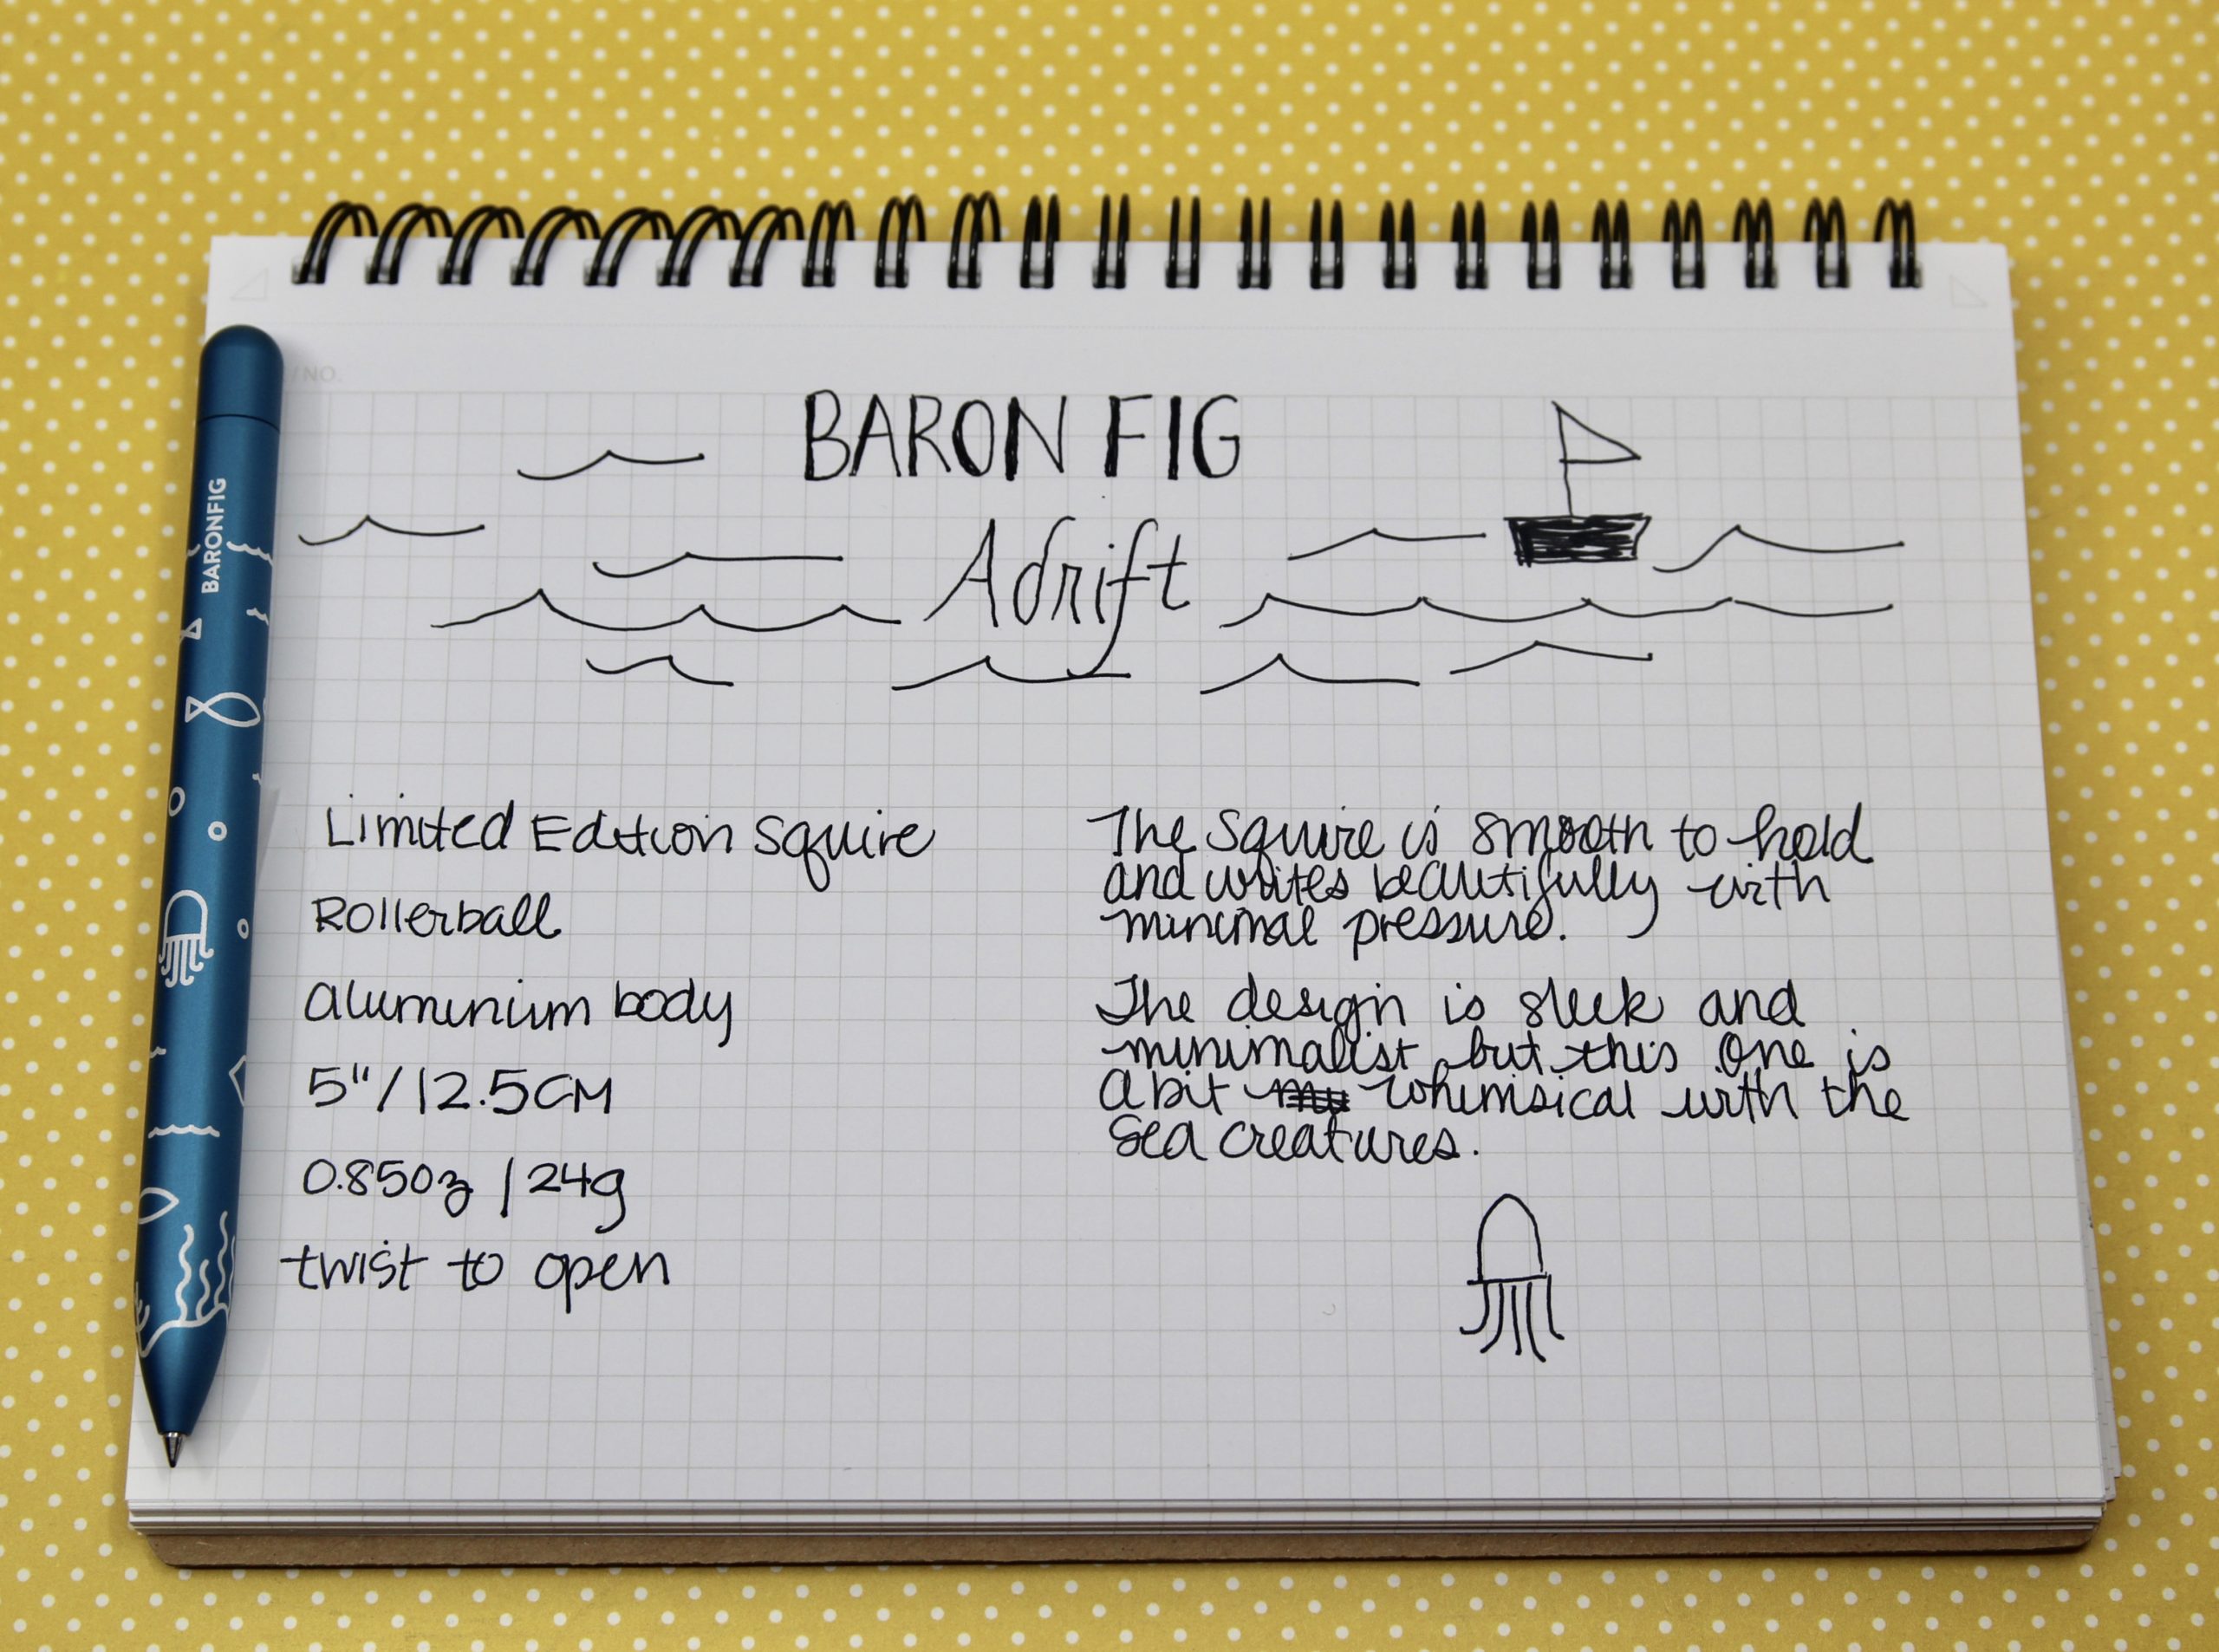 /NO.
BARON FIG
Adrift
BARONFIG
Limited Edition Squire
Rollerball
aluminium body
5"/12.5CM
0.85oz / 24g
twist to open
The Squire is smooth to hold
and writes beautifully with
minimal pressure.
The design is sleek and
minimalist but this one is
a bit whimsical with the
sea creatures.